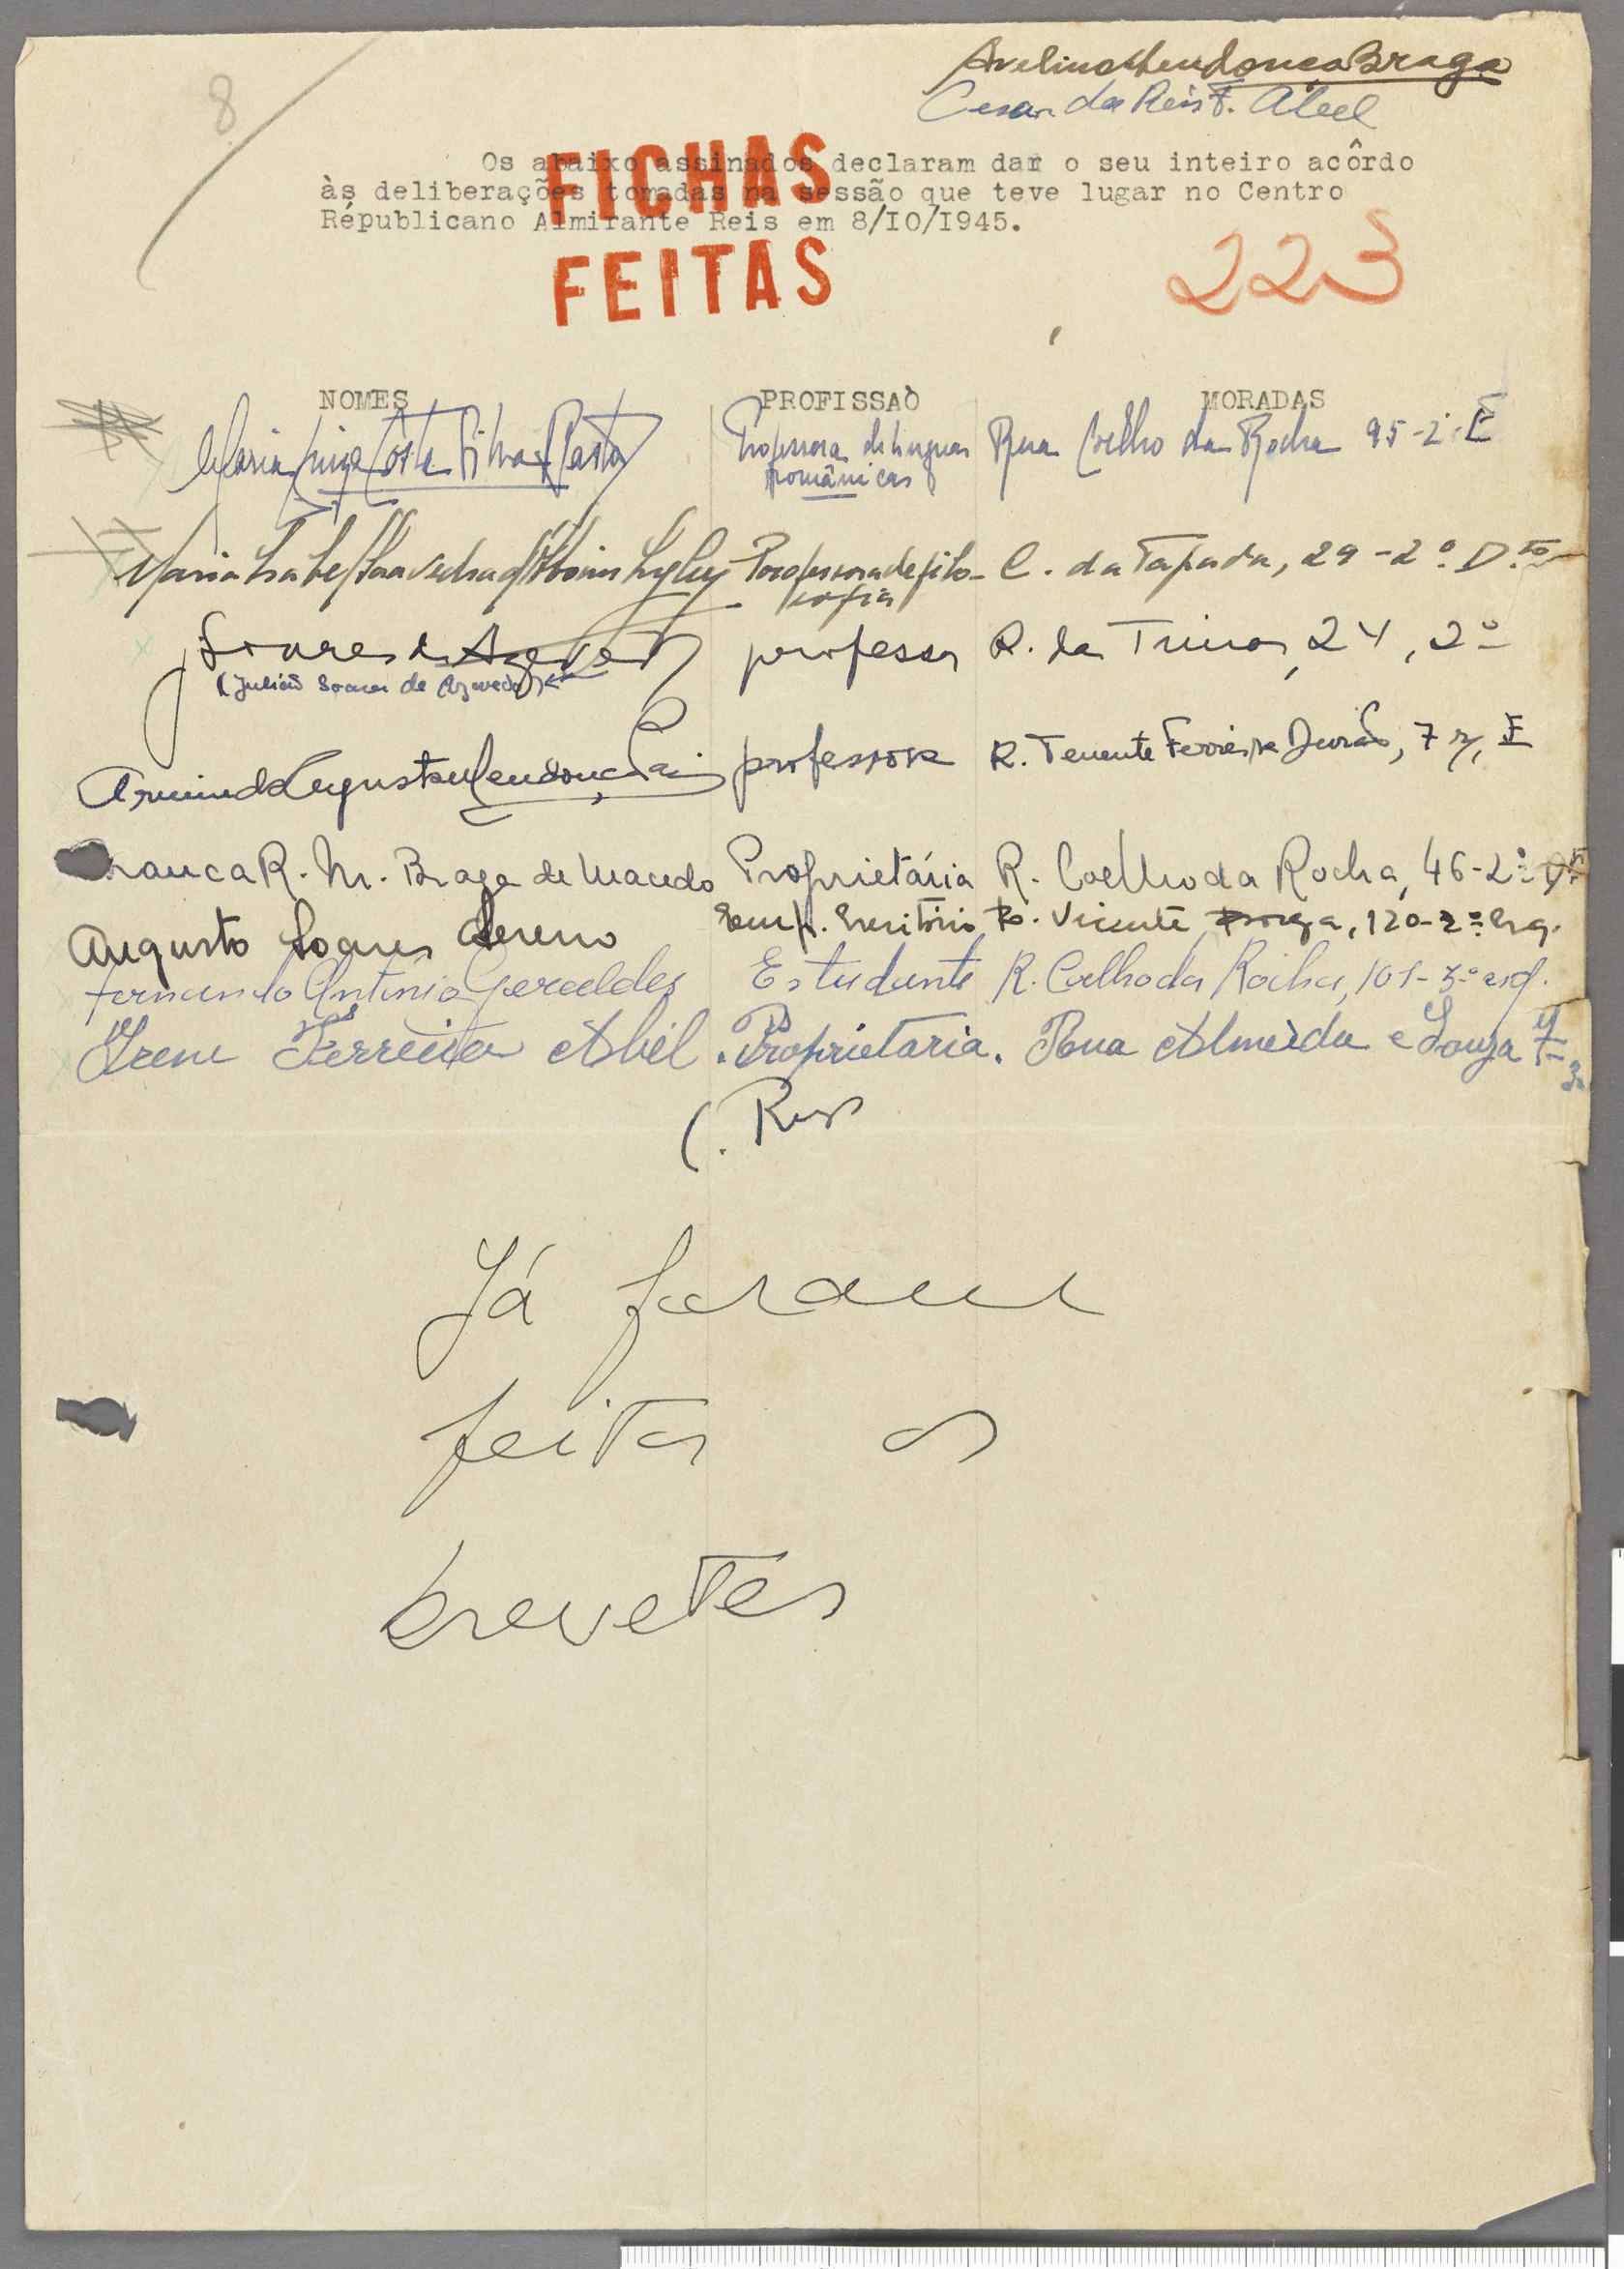 8
Avelino Mendonça Braga
Cesar dos Reis F. Abel
Os abaixo assinados declaram dar o seu inteiro acôrdo
às deliberações tomadas na sessão que teve lugar no Centro
Républicano Almirante Reis em 8/IO/I945.
FICHAS
FEITAS
223
NOMES PROFISSAO MORADAS
Maria Luiza Costa Silva Professora de linguas Rua Coelho da Rocha 95-2º E
românicas
Maria Isabel Professora de filo- C. da Tapada, 29-2º D.to
sofia
Soares de Azevedo professor R. das Trinas, 24, 2º
(Julião Soares de Azevedo)
Arminda Augusta Mendonça professora R. Tenente Ferreira Durão, 7 r/c, E
Branca R. M. Braga de Macedo Proprietária R. Coelho da Rocha, 46-2º
Augusto Soares Sereno Emp. Escritório R. Vicente Borga, 120-2º Esq.
Fernando António Geraldes Estudante R. Coelho da Rocha, 101-3º esq.
Irene Ferreira Abel. Proprietaria. Rua Almeida e Souza
C. Reis
Já foram
feitos os
brevetes